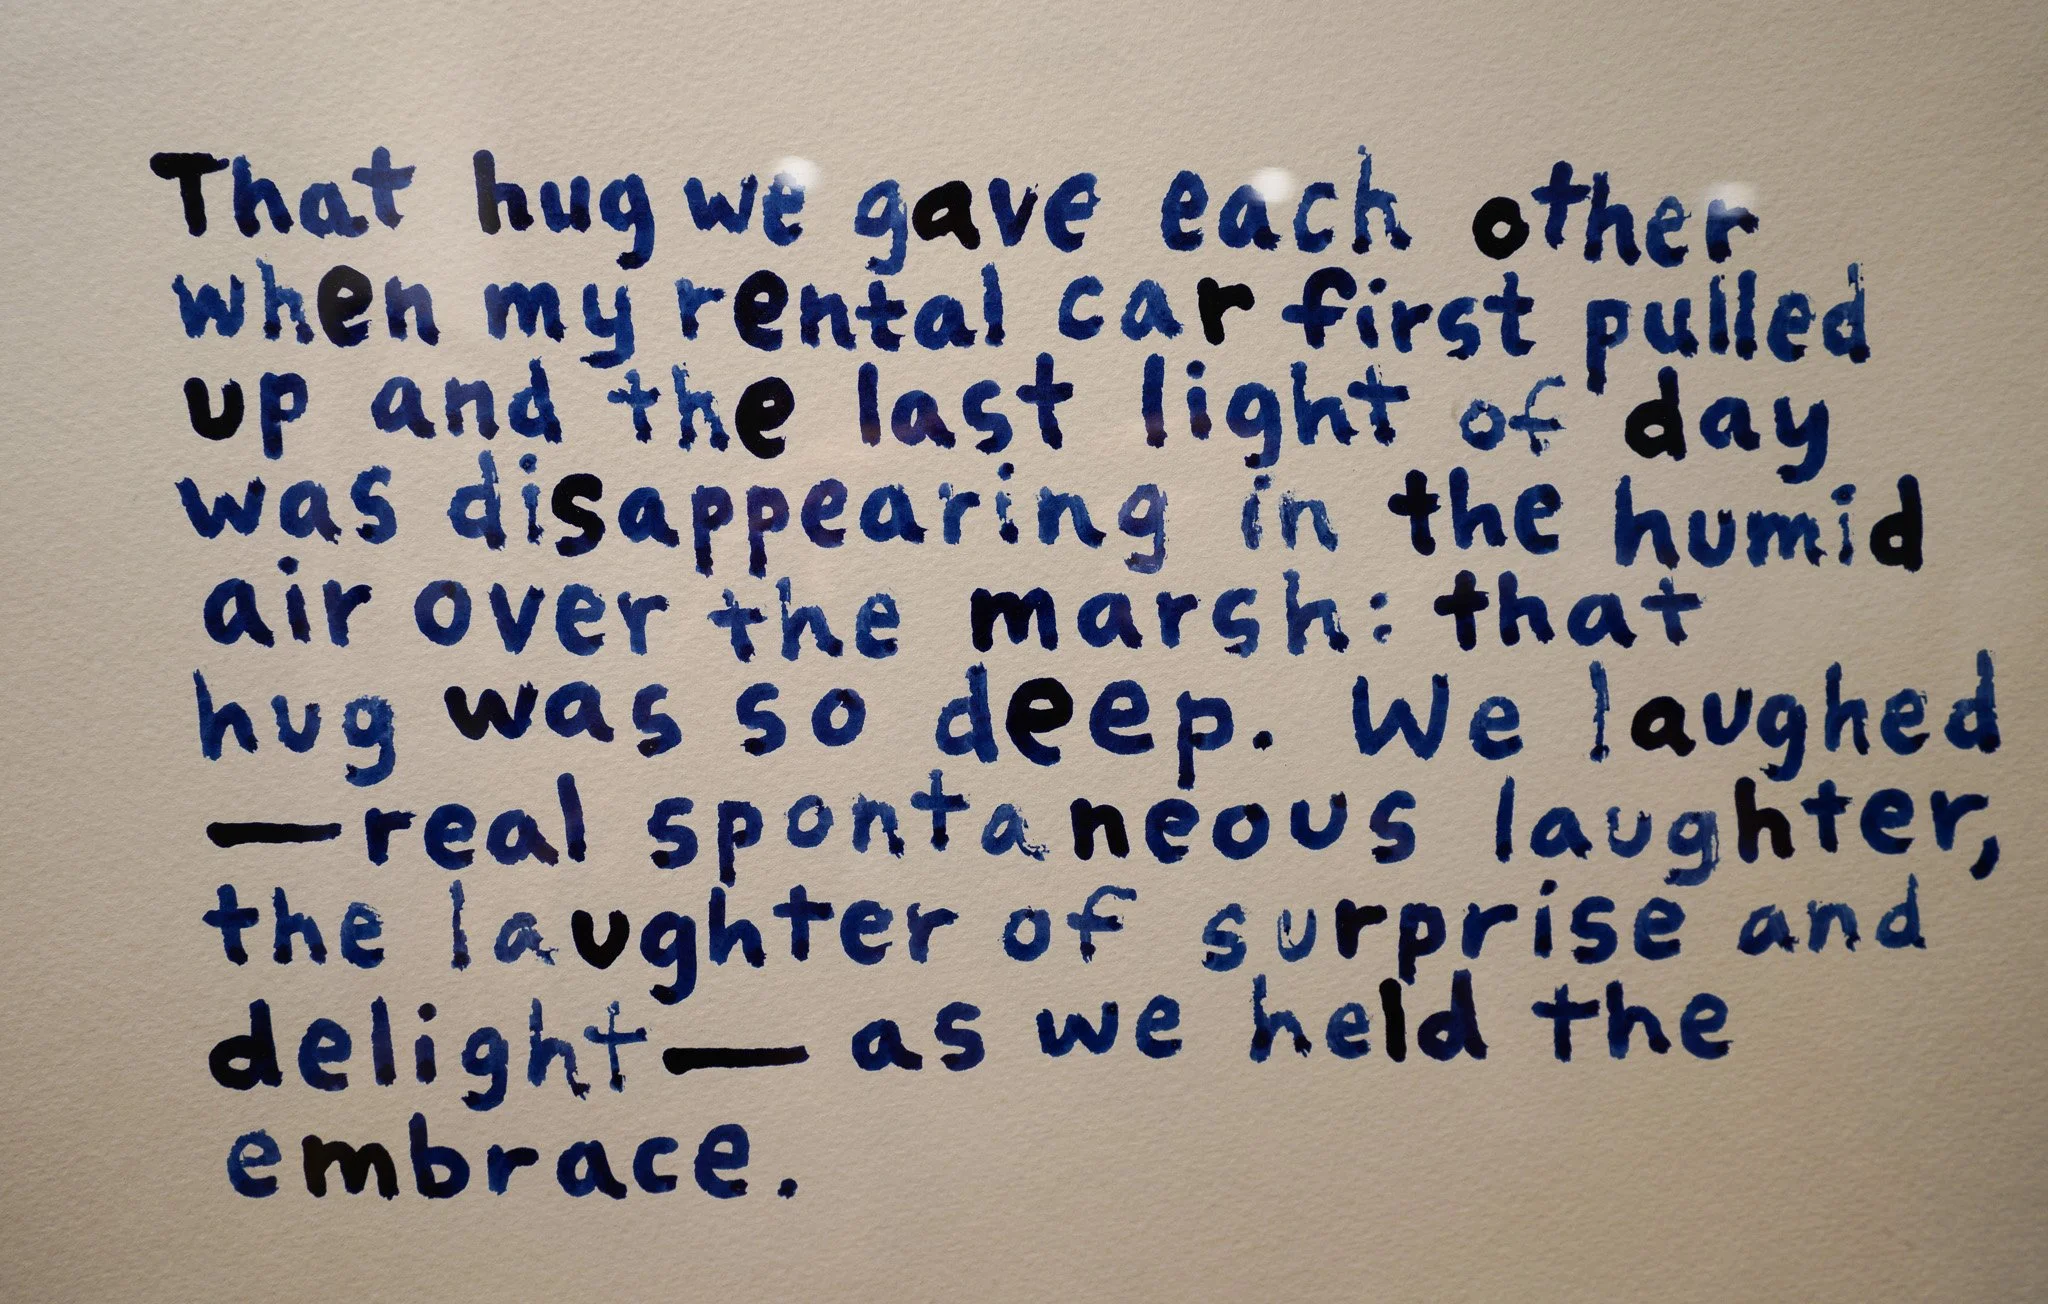 That hug we gave each other
when my rental car first pulled
up and the last light of day
was disappearing in the humid
air over the marsh: that
hug was so deep. We laughed
—real spontaneous laughter,
the laughter of surprise and
delight— as we held the
embrace.